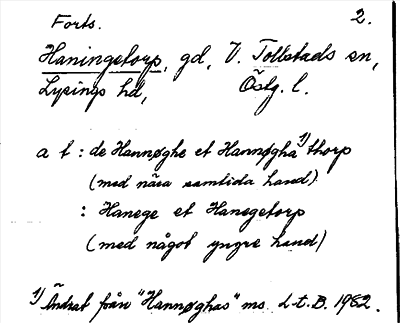 Forts. 2.
Haningetorp, gd, V. Tollstads sn,
Lysings hd, Östg. l.
a t : de Hannøghe et Hannøgha¹⁾thorp
(med nära samtida hand)
: Hanege et Hanegetorp
(med något yngre hand)
1) Ändrat från "Hannøghas" ms. L-t.B. 1982.